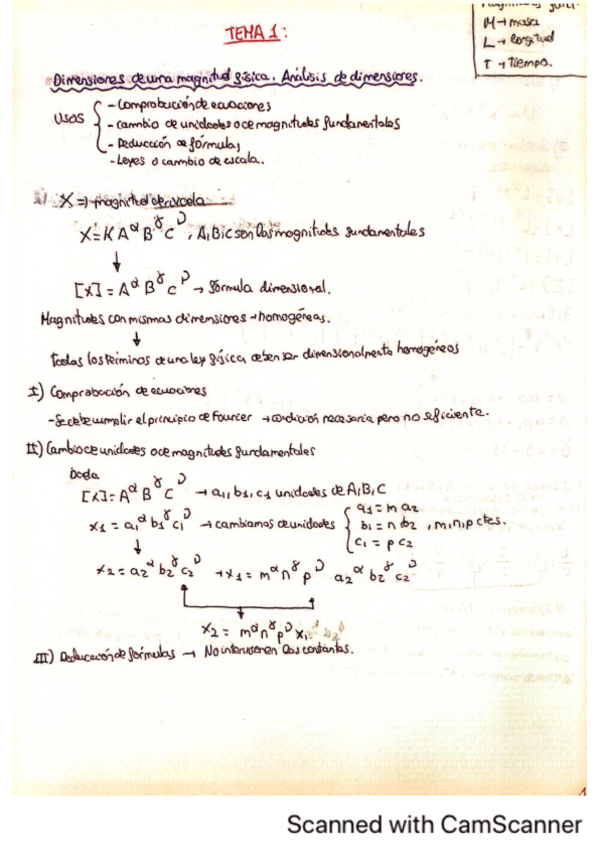 TEMA 1:
M → masa
L → longitud
T → tiempo.
Dimensiones de una magnitud física. Análisis de dimensiones.
Usos
- Comprobación de ecuaciones
- cambio de unidades o de magnitudes fundamentales
- Deducción de fórmulas
- Leyes o cambio de escala.
X ⇒ magnitud derivada
X = K A^α B^γ C^ν , A, B i C son las magnitudes fundamentales
↓
[X] = A^α B^γ C^ν → fórmula dimensional.
Magnitudes con mismas dimensiones → homogéneas.
↓
Todos los términos de una ley física deben ser dimensionalmente homogéneos
I) Comprobación de ecuaciones
- Se debe cumplir el principio de Fourier → condición necesaria pero no suficiente.
II) Cambio de unidades o de magnitudes fundamentales
Dada
[X] = A^α B^γ C^ν → a1, b1, c1 unidades de A, B, C
x1 = a1^α b1^γ c1^ν → cambiamos de unidades
a1 = m a2
b1 = n b2 , m, n, p ctes.
c1 = p c2
↓
x2 = a2^α b2^γ c2^ν → x1 = m^α n^γ p^ν a2^α b2^γ c2^ν
x2 = m^α n^γ p^ν x1
III) Deducción de fórmulas → No intervienen las constantes.
Scanned with CamScanner